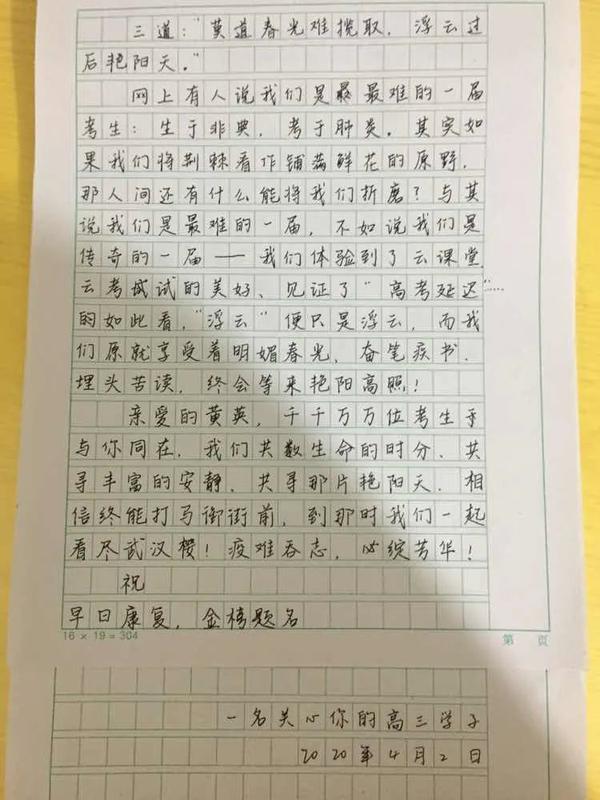 三道："莫道春光难揽取，浮云过
后艳阳天。"
网上有人说我们是最最难的一届
考生：生于非典，考于肺炎。其实如
果我们将荆棘看作铺满鲜花的原野，
那人间还有什么能将我们折磨？与其
说我们是最难的一届，不如说我们是
传奇的一届——我们体验到了云课堂、
云考城试的美好、见证了"高考延迟"……
的如此看，"浮云"便只是浮云，而我
们原就享受着明媚春光，奋笔疾书、
埋头苦读，终会等来艳阳高照！
亲爱的黄英，千千万万位考生乎
与你同在，我们共数生命的时分、共
寻丰富的安静、共寻那片艳阳天。相
信终能打马御街前，到那时我们一起
看尽武汉樱！疫难吞志，心绽芳华！
祝
早日康复，金榜题名
16×19=304 第 页
一名关心你的高三学子
2020年4月2日